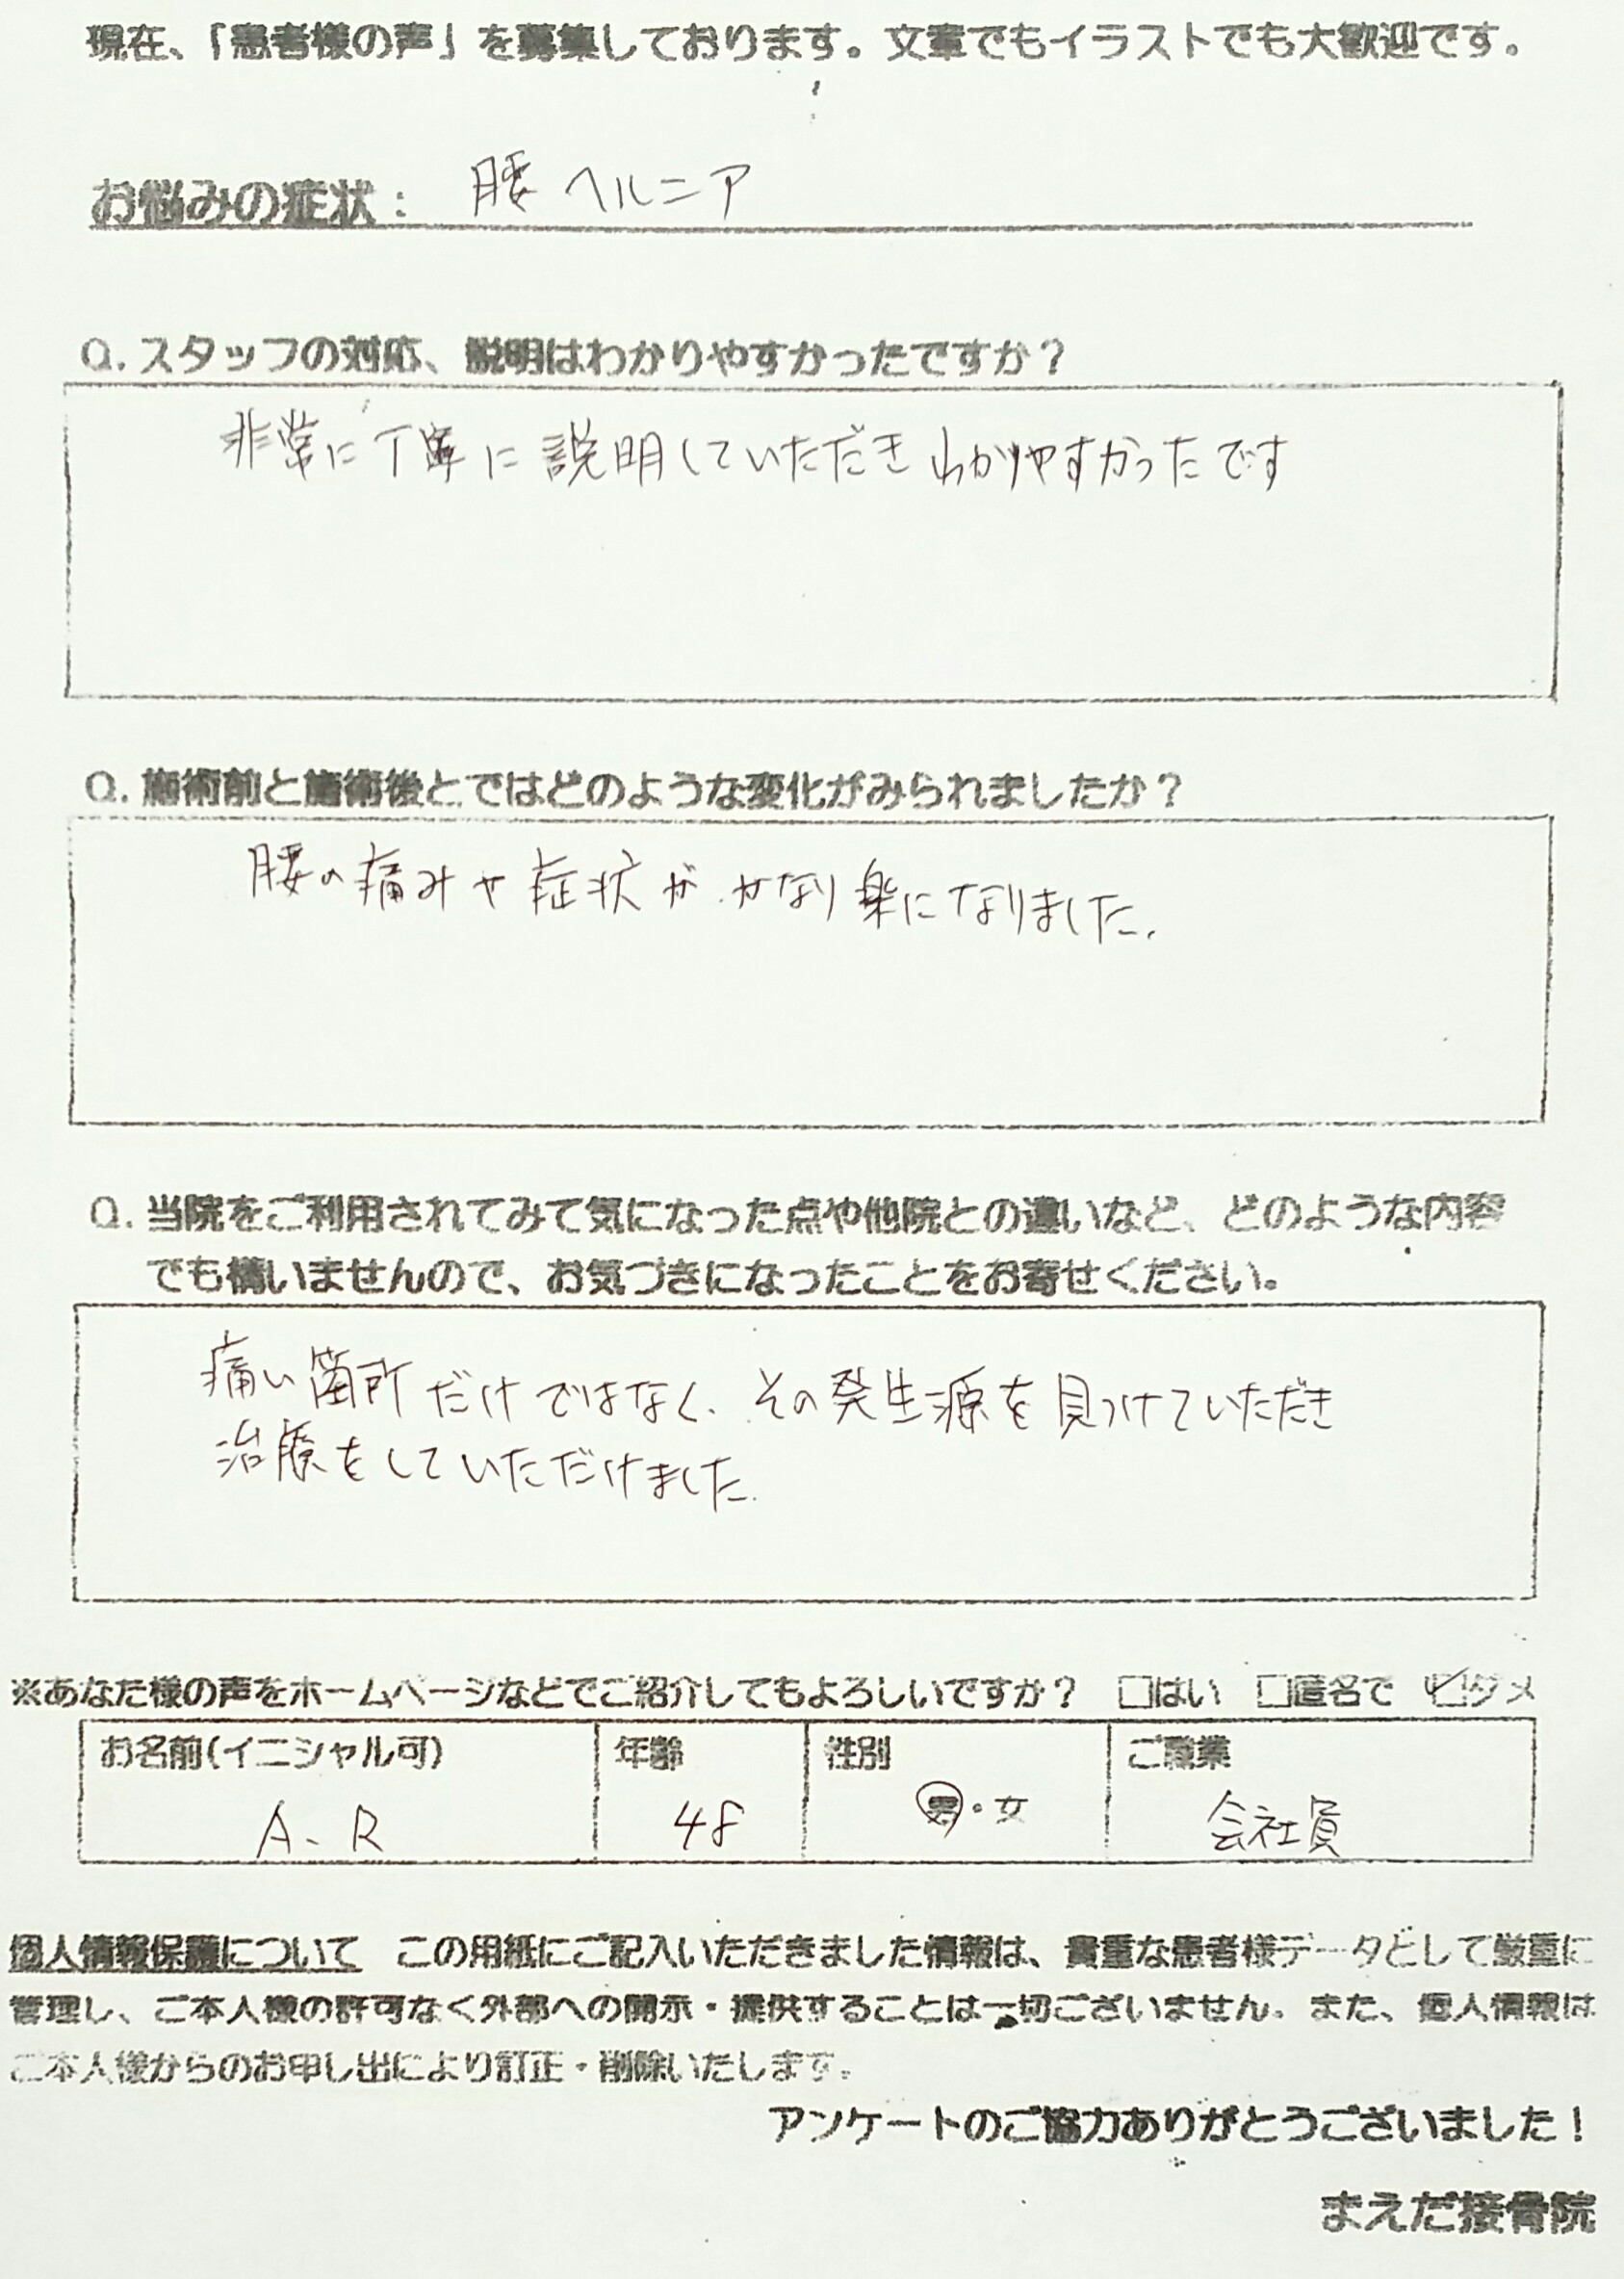 現在、「患者様の声」を募集しております。文章でもイラストでも大歓迎です。
お悩みの症状： 腰ヘルニア
Q. スタッフの対応、説明はわかりやすかったですか？
非常に丁寧に説明していただきわかりやすかったです
Q. 施術前と施術後とではどのような変化がみられましたか？
腰の痛みや症状がかなり楽になりました.
Q. 当院をご利用されてみて気になった点や他院との違いなど、どのような内容
でも構いませんので、お気づきになったことをお寄せください。
痛い箇所だけではなく、その発生源を見つけていただき
治療をしていただけました.
※あなた様の声をホームページなどでご紹介してもよろしいですか？ □はい □匿名で ☑ダメ
お名前(イニシャル可) 年齢 性別 ご職業
A、R 48 男・女 会社員
個人情報保護について この用紙にご記入いただきました情報は、貴重な患者様データとして厳重に
管理し、ご本人様の許可なく外部への開示・提供することは一切ございません。また、個人情報は
ご本人様からのお申し出により訂正・削除いたします。
アンケートのご協力ありがとうございました！
まえだ接骨院